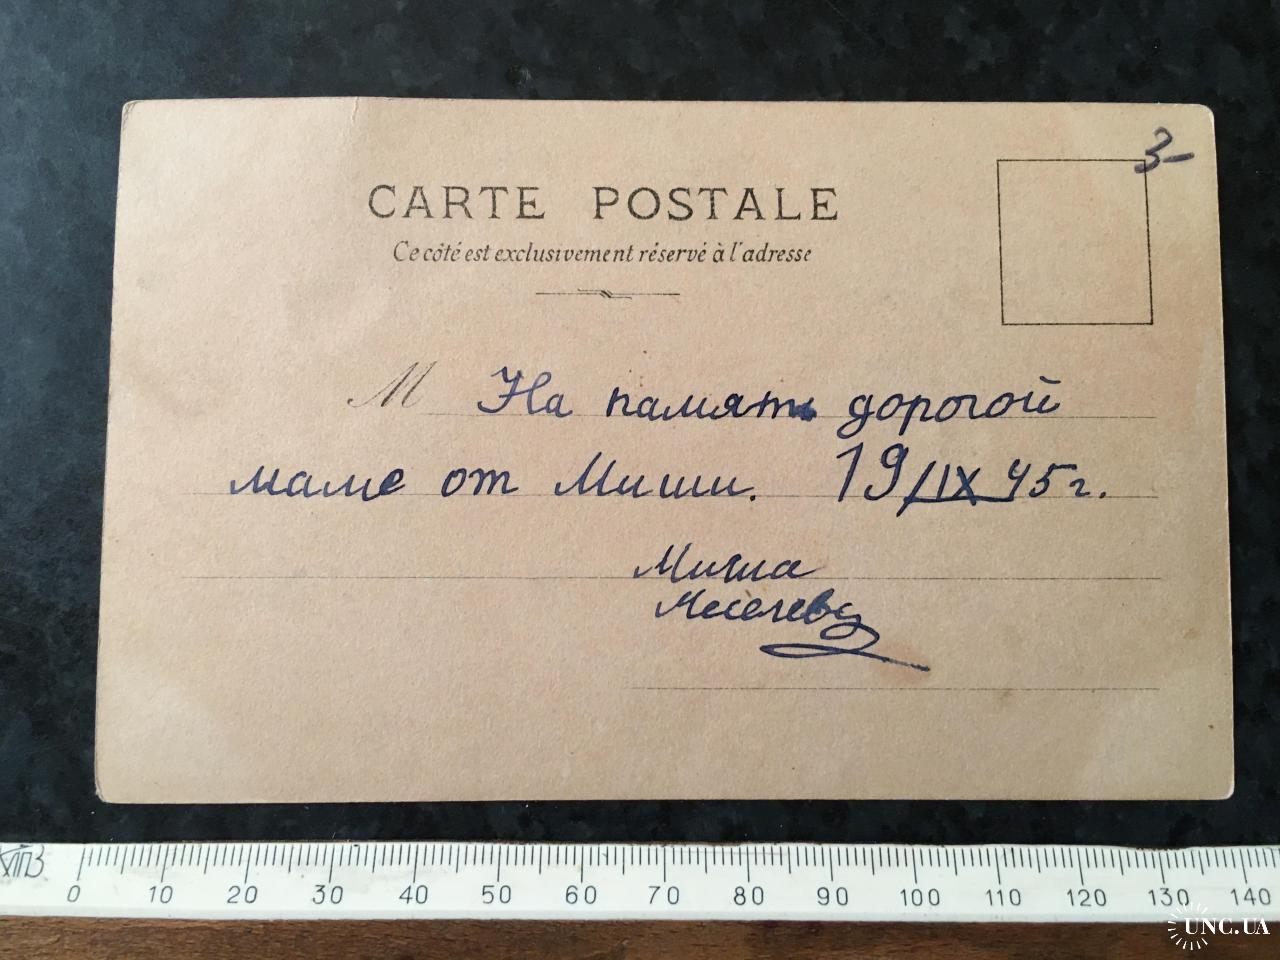 3-
CARTE POSTALE
Ce côté est exclusivement réservé à l'adresse
M На память дорогой
маме от Миши. 19/IX 45 г.
Миша
0 10 20 30 40 50 60 70 80 90 100 110 120 130 140
UNC.UA